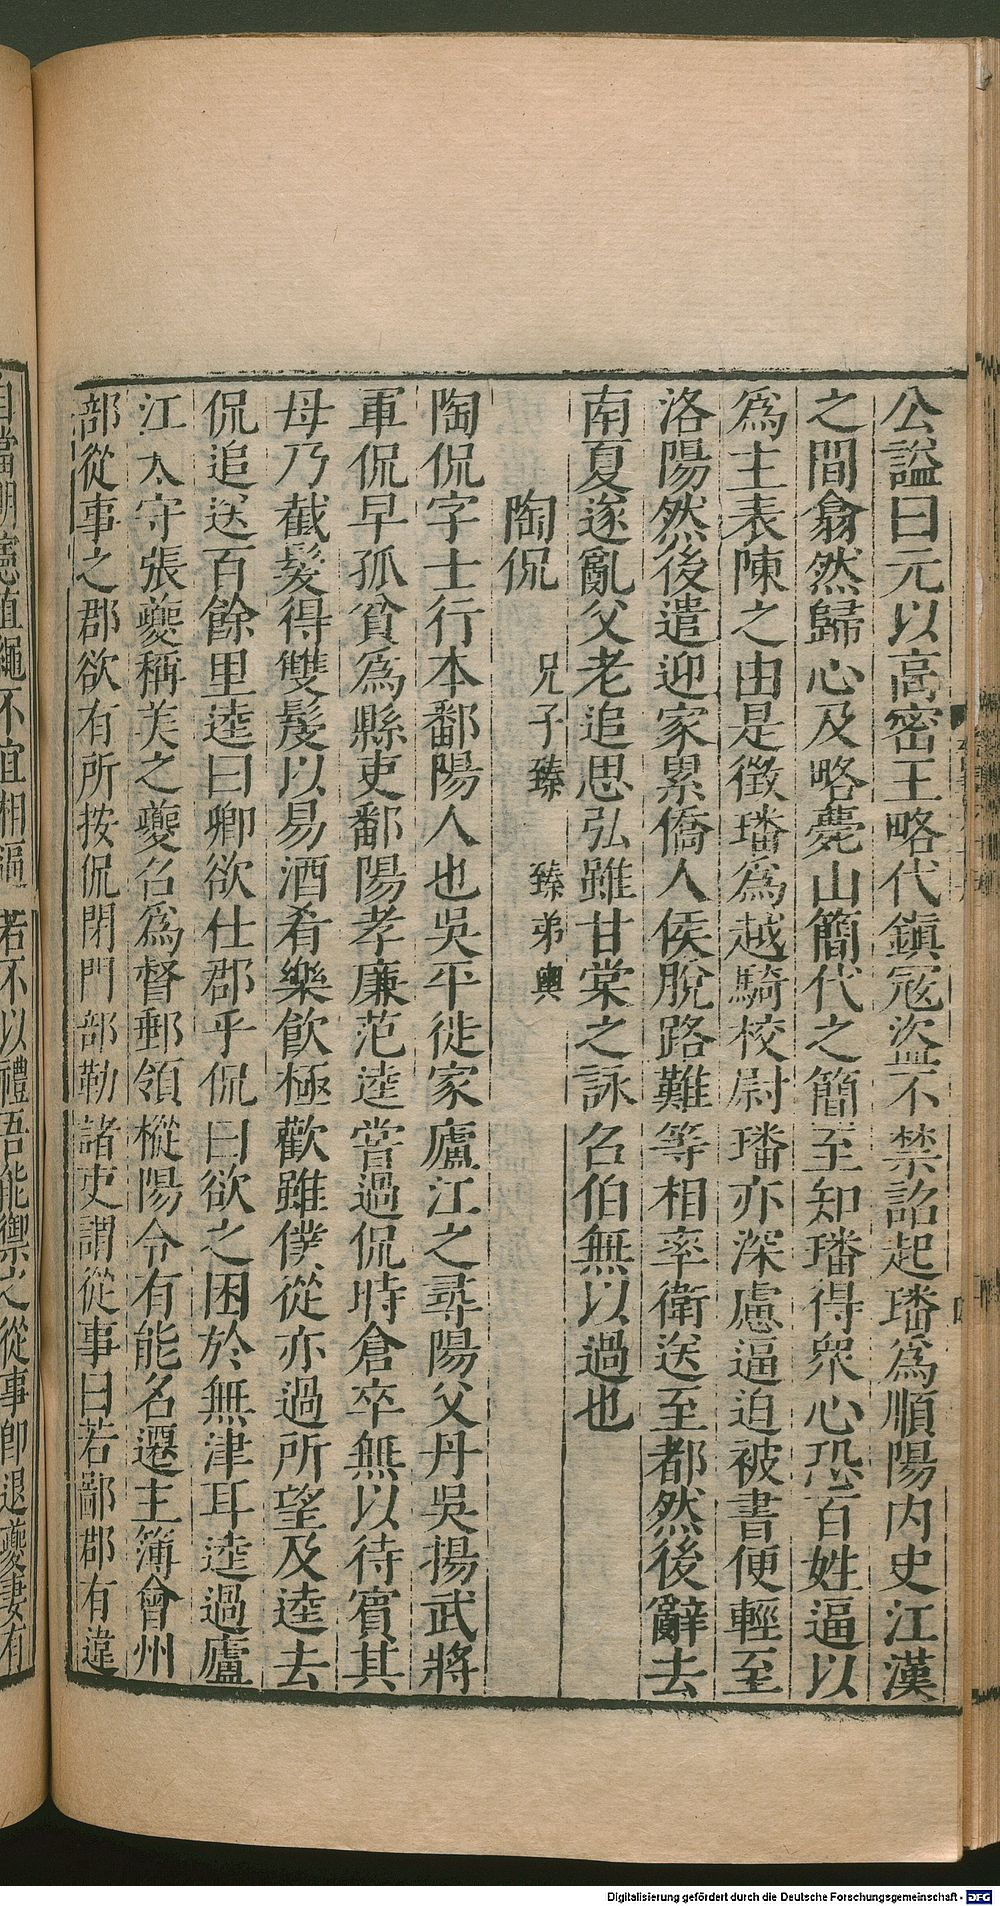 公謚曰元以高密王略代鎮寇盜不禁詔起璠爲順陽内史江漢
之間翕然歸心及略薨山簡代之簡至知璠得衆心恐百姓逼以
爲主表陳之由是徵璠爲越騎校尉璠亦深慮逼迫被書便輕至
洛陽然後遣迎家累僑人侯脫路難等相率衛送至都然後辭去
南夏遂亂父老追思弘雖甘棠之詠召伯無以過也
陶侃 兄子臻 臻弟輿
陶侃字士行本鄱陽人也吳平徙家廬江之尋陽父丹吳揚武將
軍侃早孤貧爲縣吏鄱陽孝廉范逵嘗過侃時倉卒無以待賓其
母乃截髮得雙髲以易酒肴樂飲極歡雖僕從亦過所望及逵去
侃追送百餘里逵曰卿欲仕郡乎侃曰欲之困於無津耳逵過廬
江太守張夔稱美之夔召爲督郵領樅陽令有能名遷主簿會州
部從事之郡欲有所按侃閉門部勒諸吏謂從事曰若鄙郡有違
自當明憲直繩不宜相逼若不以禮吾能禦之從事卽退夔妻有
Digitalisierung gefördert durch die Deutsche Forschungsgemeinschaft - DFG